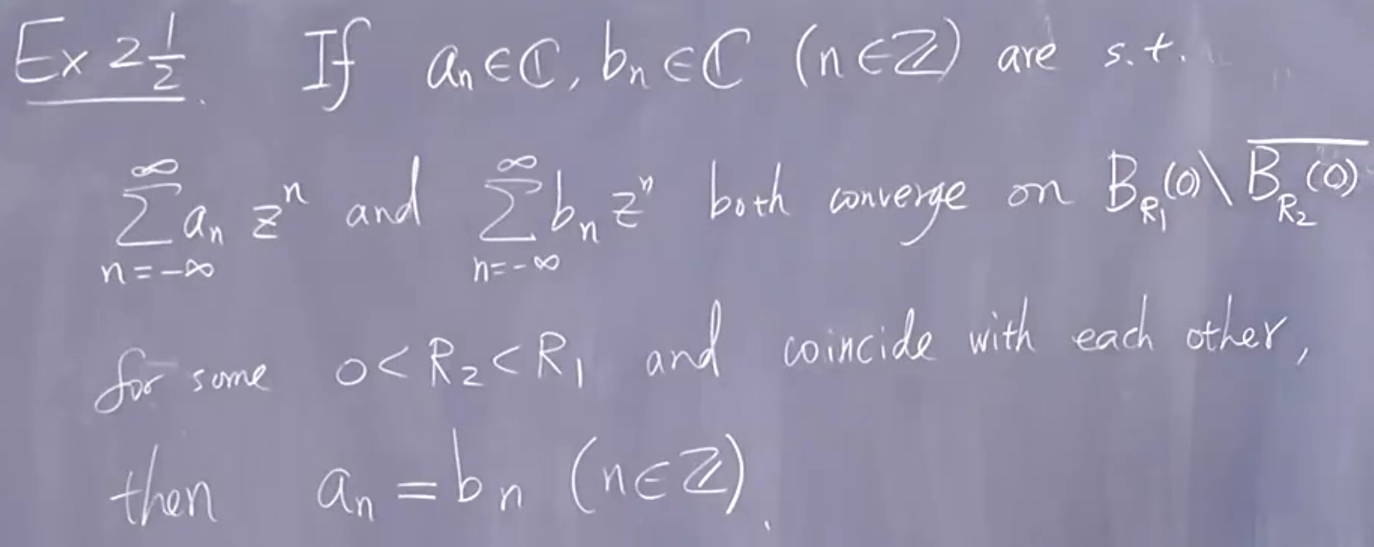 Ex 2½. If aₙ∈ℂ, bₙ∈ℂ (n∈ℤ) are s.t.
∑_{n=-∞}^{∞} aₙ zⁿ and ∑_{n=-∞}^{∞} bₙ zⁿ both converge on B_{R₁}(0)\ \overline{B_{R₂}(0)}
for some 0<R₂<R₁ and coincide with each other,
then aₙ = bₙ (n∈ℤ).